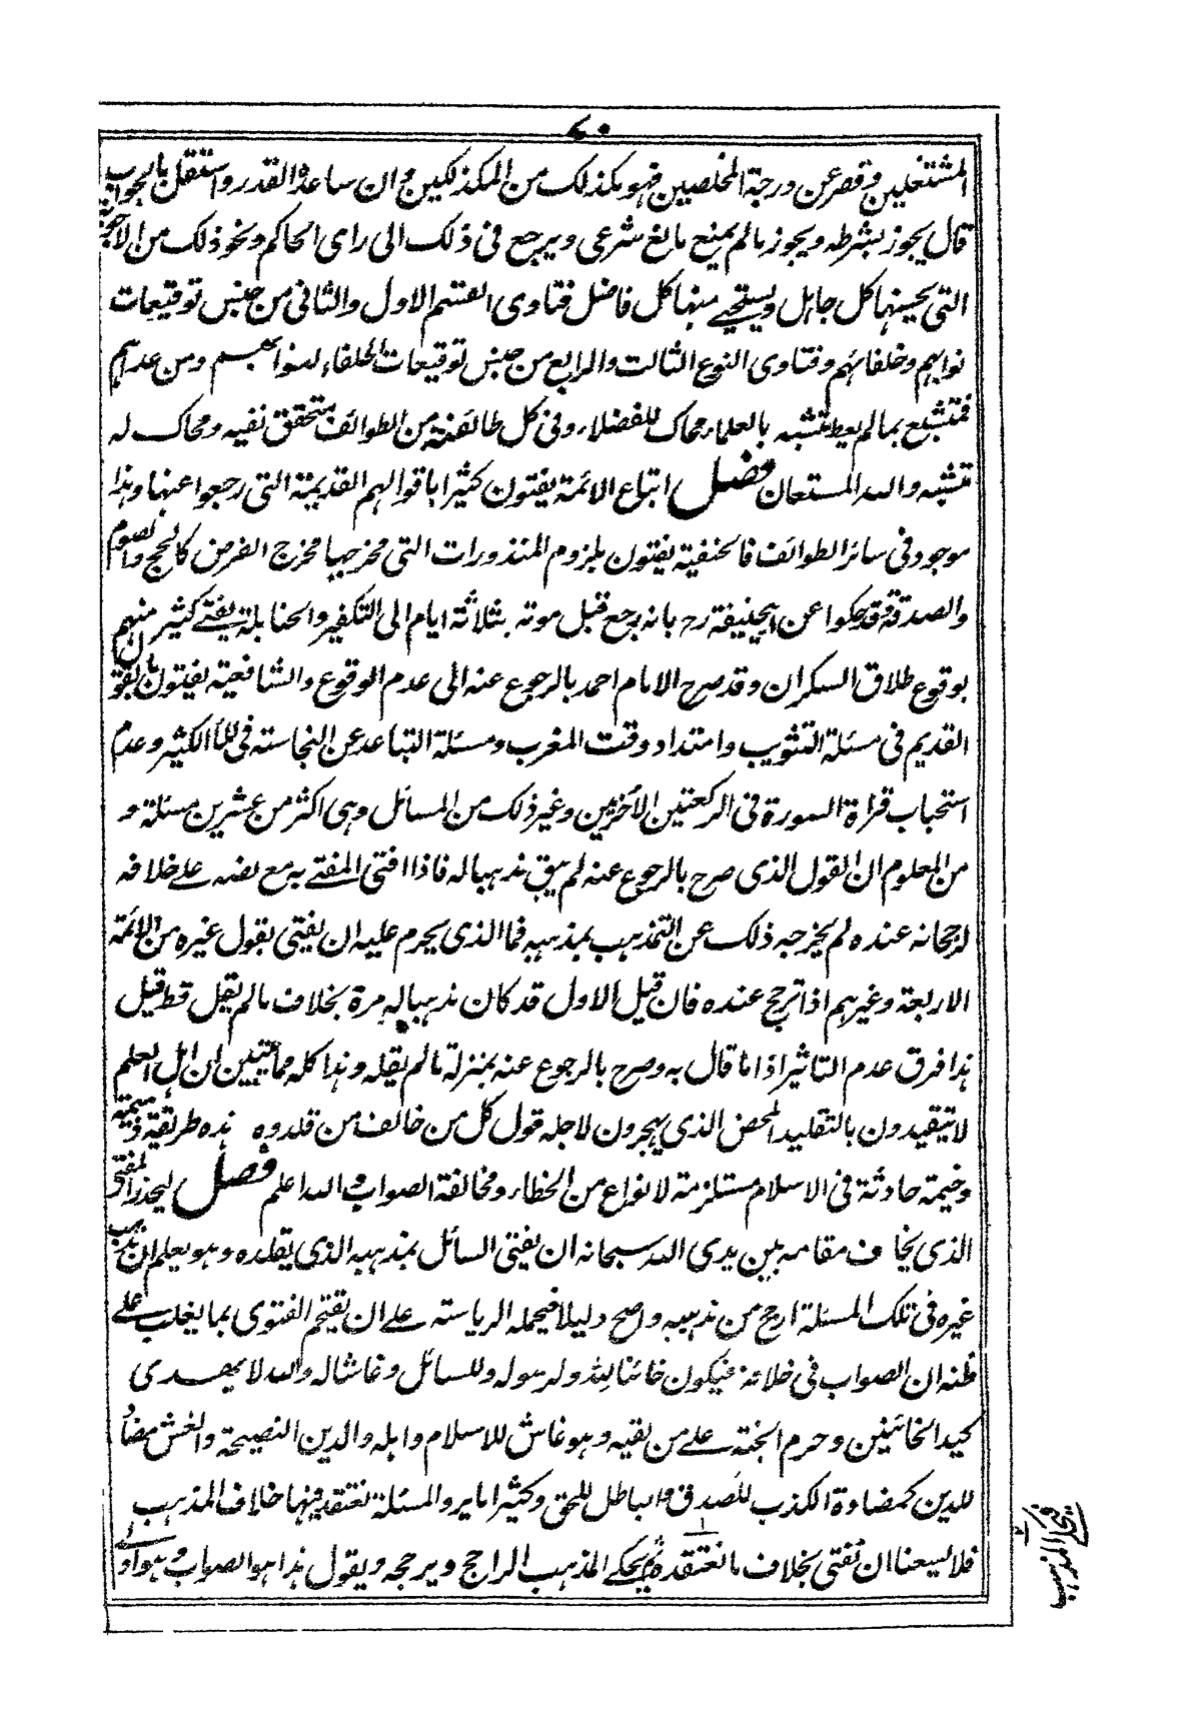 ٧٠
المشتغلين وقصر عن درجة المخلصين فهو مكذلك من المكذلكين وان ساعده القدر واستقل بالجواب
قال يجوز بشرطه ويجوز ما لم يمنع مانع شرعى ويرجع فى ذلك الى راى الحاكم ونحو ذلك من الاجوبة
التى يحسنها كل جاهل ويستحيى منها كل فاضل فتاوى القسم الاول والثانى من جنس توقيعات
نوابهم وخلفائهم وفتاوى النوع الثالث والرابع من جنس توقيعات الخلفاء لنوابهم ومن عداهم
فمتشبع بما لم يعط متشبه بالعلماء محاك للفضلاء وفى كل طائفة من الطوائف متحقق نفيه ومحاك له
متشبه والله المستعان فصل اتباع الائمة يفتون كثيرا باقوالهم القديمة التى رجعوا عنها وهذا
موجود فى سائر الطوائف فالحنفية يفتون بلزوم المنذورات التى مخرجها مخرج الفرض كالحج والصوم
والصدقة وقد حكوا عن ابيحنيفة رح بانه رجع قبل موته بثلاثة ايام الى التكفير والحنابلة يفتى كثير منهم
بوقوع طلاق السكران وقد صرح الامام احمد بالرجوع عنه الى عدم الوقوع والشافعية يفتون بالقول
القديم فى مسئلة التثويب وامتداد وقت المغرب ومسئلة التباعد عن النجاسته فى الماء الكثير وعدم
استحباب قراة السورة فى الركعتين الأخريين وغير ذلك من المسائل وهى اكثر من عشرين مسئلة و
من المعلوم ان القول الذى صرح بالرجوع عنه لم يبق مذهبا له فاذا افتى المفتى به مع نصه على خلافه
لرجحانه عنده لم يخرجه ذلك عن التمذهب بمذهبه فما الذى يحرم عليه ان يفتى بقول غيره من الائمة
الاربعة وغيرهم اذا ترجح عنده فان قيل الاول قد كان مذهبا له مرة بخلاف ما لم يقل قط قيل
هذا فرق عدم التاثير اذ ما قال به وصرح بالرجوع عنه بمنزلة ما لم يقله وهذا كله مما يتبين ان اهل العلم
لا يتقيدون بالتقليد المحض الذى يهجرون لاجله قول كل من خالف من قلدوه هذه طريقة ذميمة
وخيمة حادثة فى الاسلام مستلزمة لانواع من الخطاء ومخالفة الصواب والله اعلم فصل ليحذر المفتى
الذى يخاف مقامه بين يدى الله سبحانه ان يفتى السائل بمذهبه الذى يقلده وهو يعلم ان مذهب
غيره فى تلك المسئلة ارجح من مذهبه واصح دليلا فيحمله الرياسته على ان يقتحم الفتوى بما يغلب على
ظنه ان الصواب فى خلافه فيكون خائنا لله ولرسوله وللسائل وغاشا له والله لا يهدى
كيد الخائنين وحرم الجنة على من لقيه وهو غاش للاسلام واهله والدين النصيحة والغش مضاد
للدين كمضادة الكذب للصدق والباطل للحق وكثيرا ما يرد المسئلة نعتقد فيها خلاف المذهب
فلا يسعنا ان نفتى بخلاف ما نعتقده ثم يحكى المذهب الراجح ويرجحه ويقول هذا هو الصواب وهو اولى
فيحكى المذهب